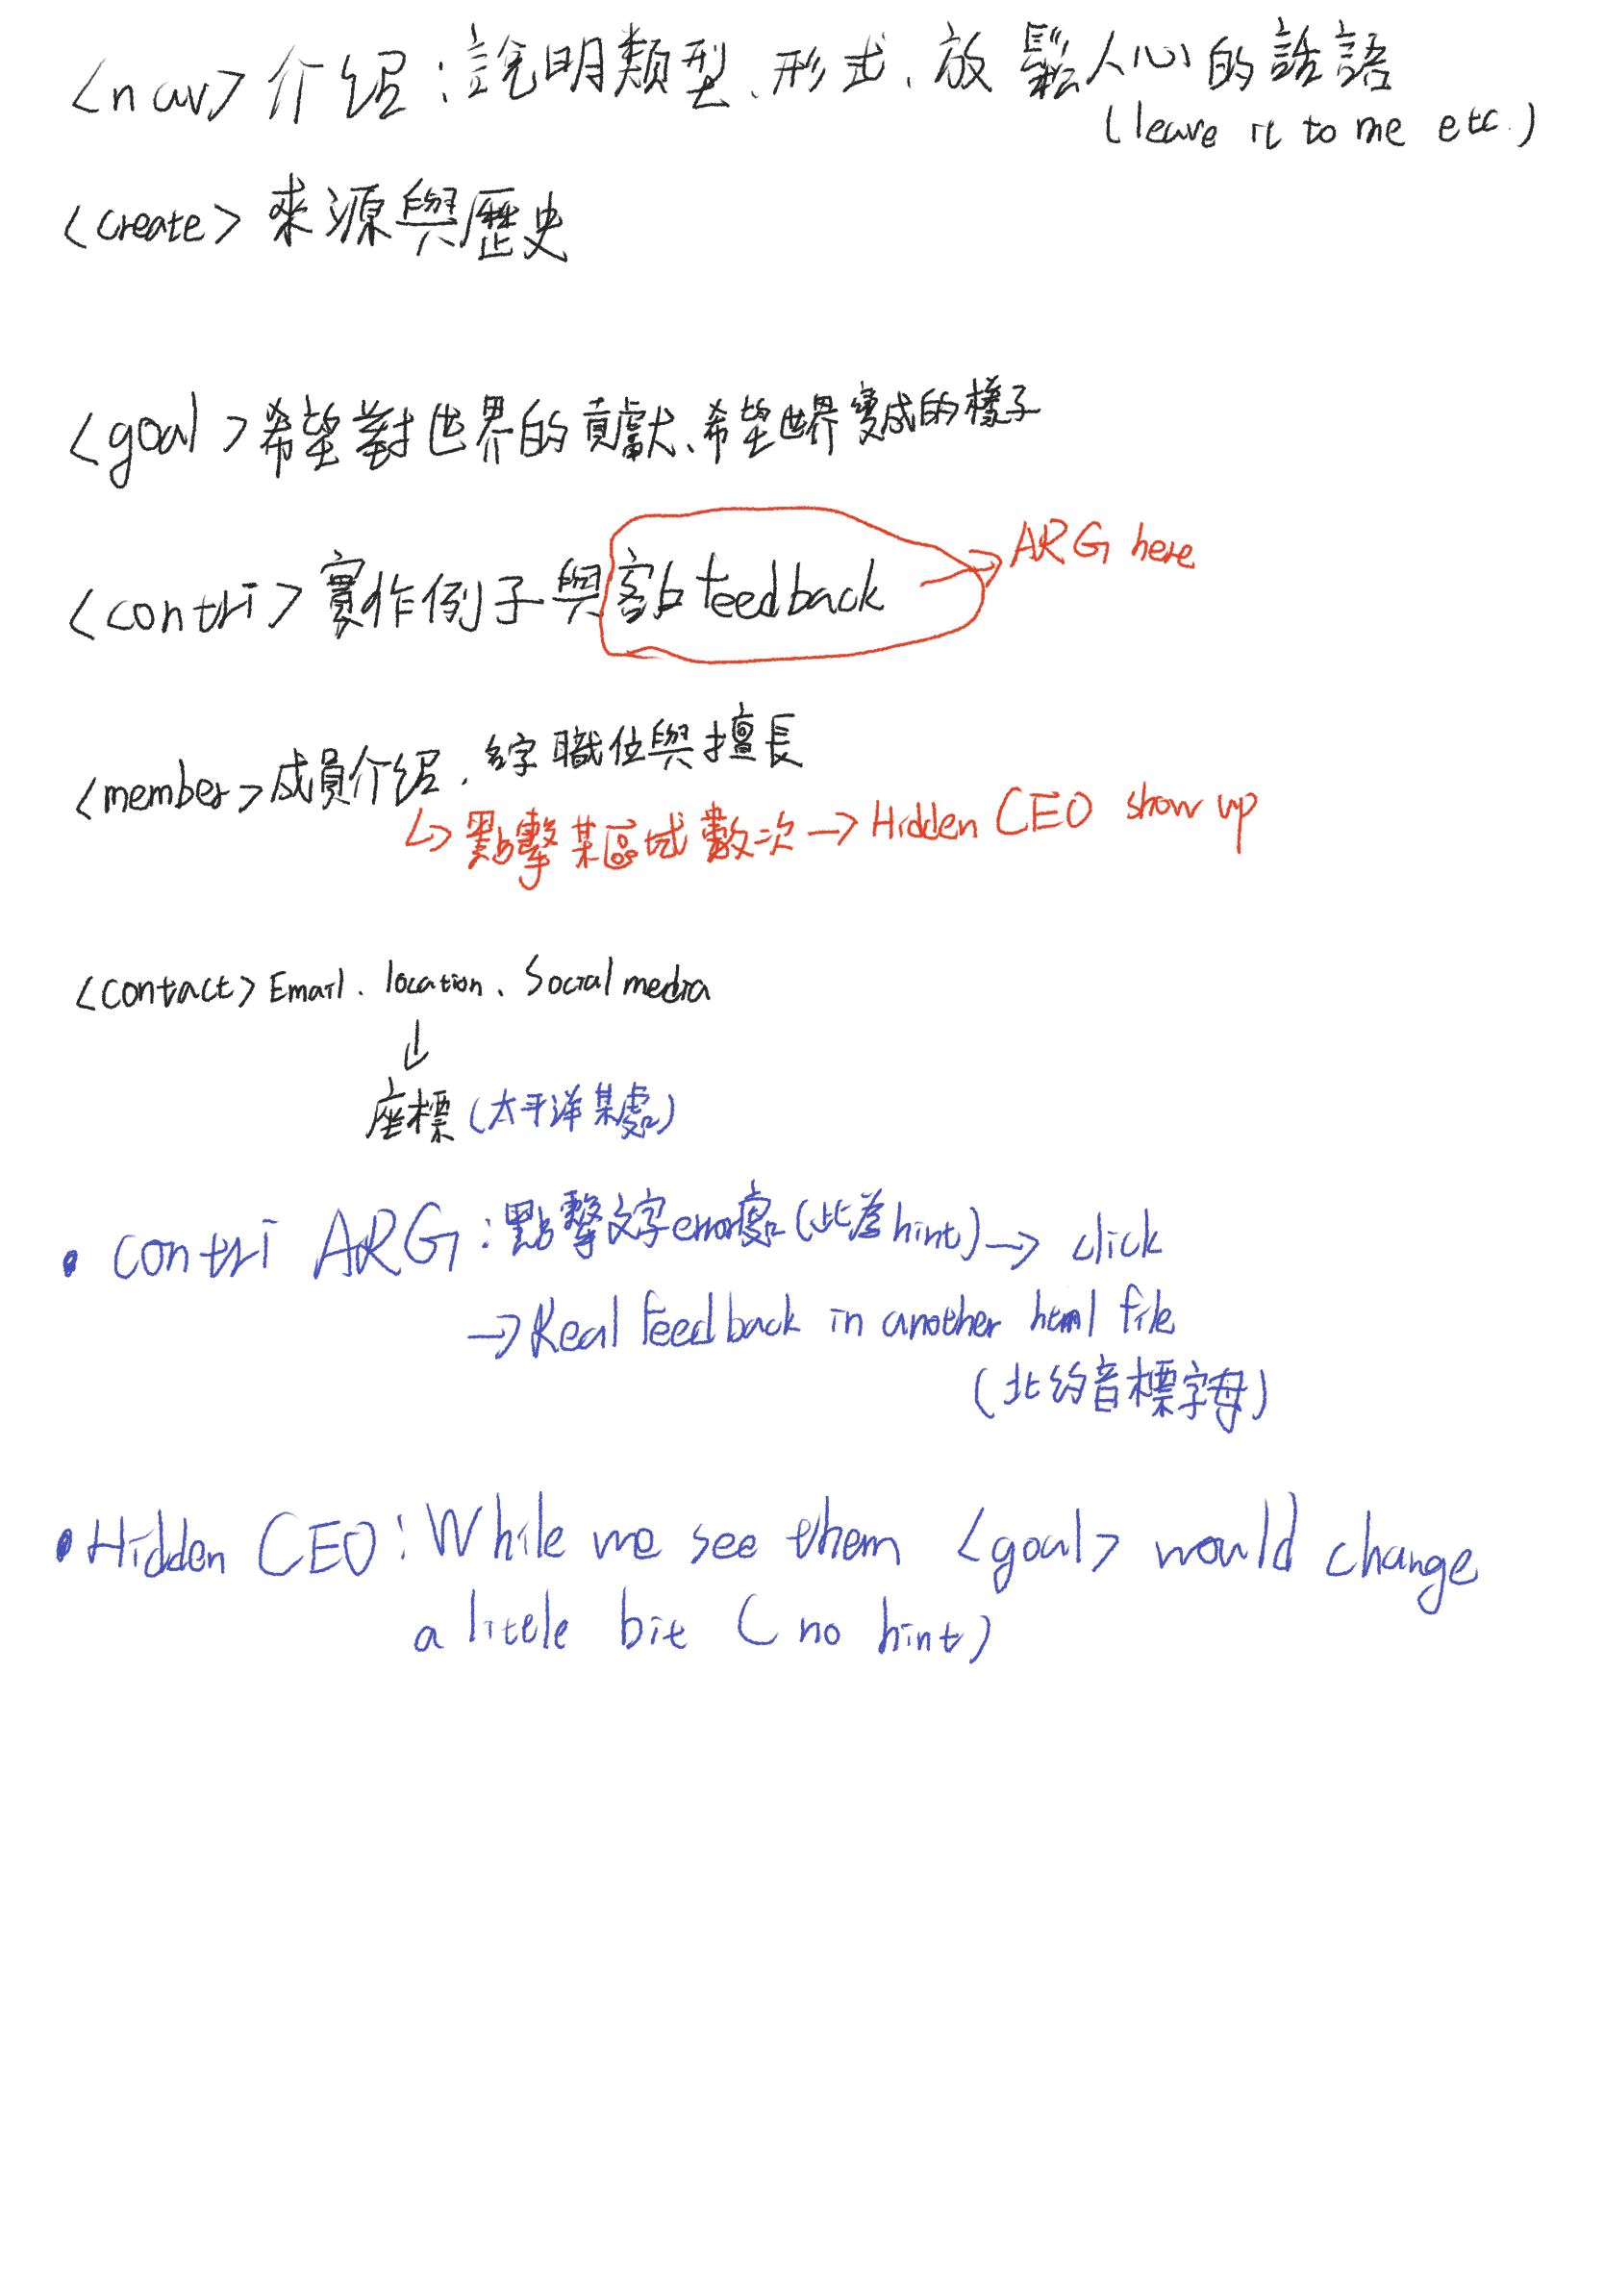 <nav> 介紹：說明類型、形式、放鬆人心的話語
(leave it to me etc.)
<create> 來源與歷史
<goal> 希望對世界的貢獻、希望世界變成的樣子
<contri> 實作例子與客戶feedback → ARG here
<member> 成員介紹、名字職位與擅長
↳ 點擊某區域數次 → Hidden CEO show up
<contact> Email、location、Social media
↓
座標 (太平洋某處)
• contri ARG：點擊文字error處(此為hint) → click
→ Real feedback in another html file
(北約音標字母)
• Hidden CEO：While we see them <goal> would change
a little bit (no hint)